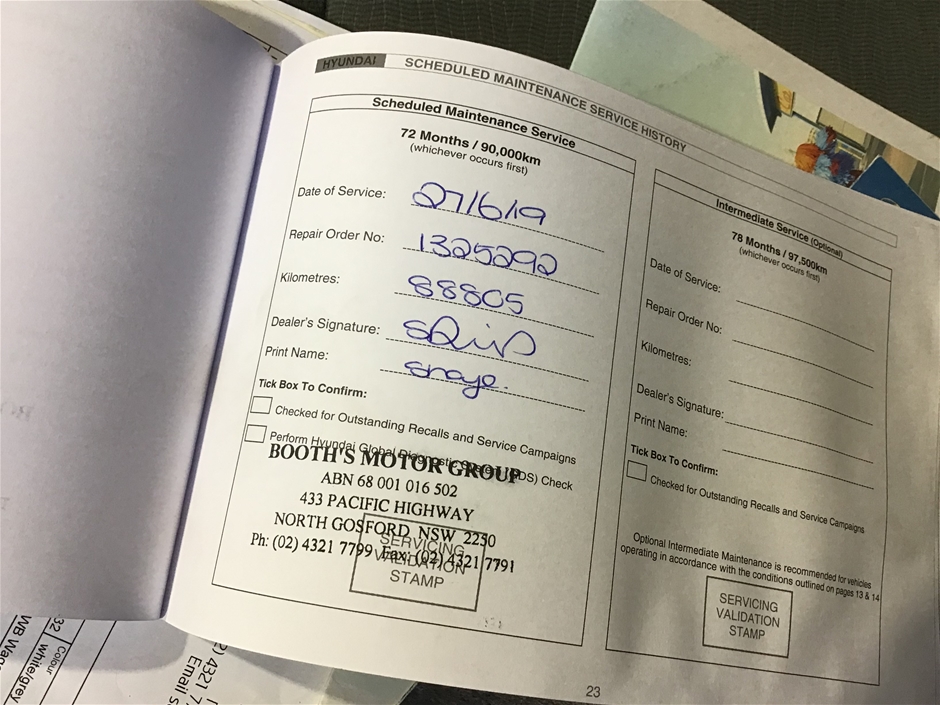 HYUNDAI SCHEDULED MAINTENANCE SERVICE HISTORY
Scheduled Maintenance Service
72 Months / 90,000km
(whichever occurs first)
Date of Service: 27/6/19
Repair Order No: 1325292
Kilometres: 88805
Dealer's Signature:
Print Name: Shaye.
Tick Box To Confirm:
Checked for Outstanding Recalls and Service Campaigns
Perform Hyundai Global Diagnostic System (GDS) Check
BOOTH'S MOTOR GROUP
ABN 68 001 016 502
433 PACIFIC HIGHWAY
NORTH GOSFORD, NSW 2250
Ph: (02) 4321 7799 Fax: (02) 4321 7791
SERVICING
VALIDATION
STAMP
Intermediate Service (Optional)
78 Months / 97,500km
(whichever occurs first)
Date of Service:
Repair Order No:
Kilometres:
Dealer's Signature:
Print Name:
Tick Box To Confirm:
Checked for Outstanding Recalls and Service Campaigns
Optional Intermediate Maintenance is recommended for vehicles
operating in accordance with the conditions outlined on pages 13 & 14
SERVICING
VALIDATION
STAMP
23
32
Colour
white/grey
2) 4321 7
Email